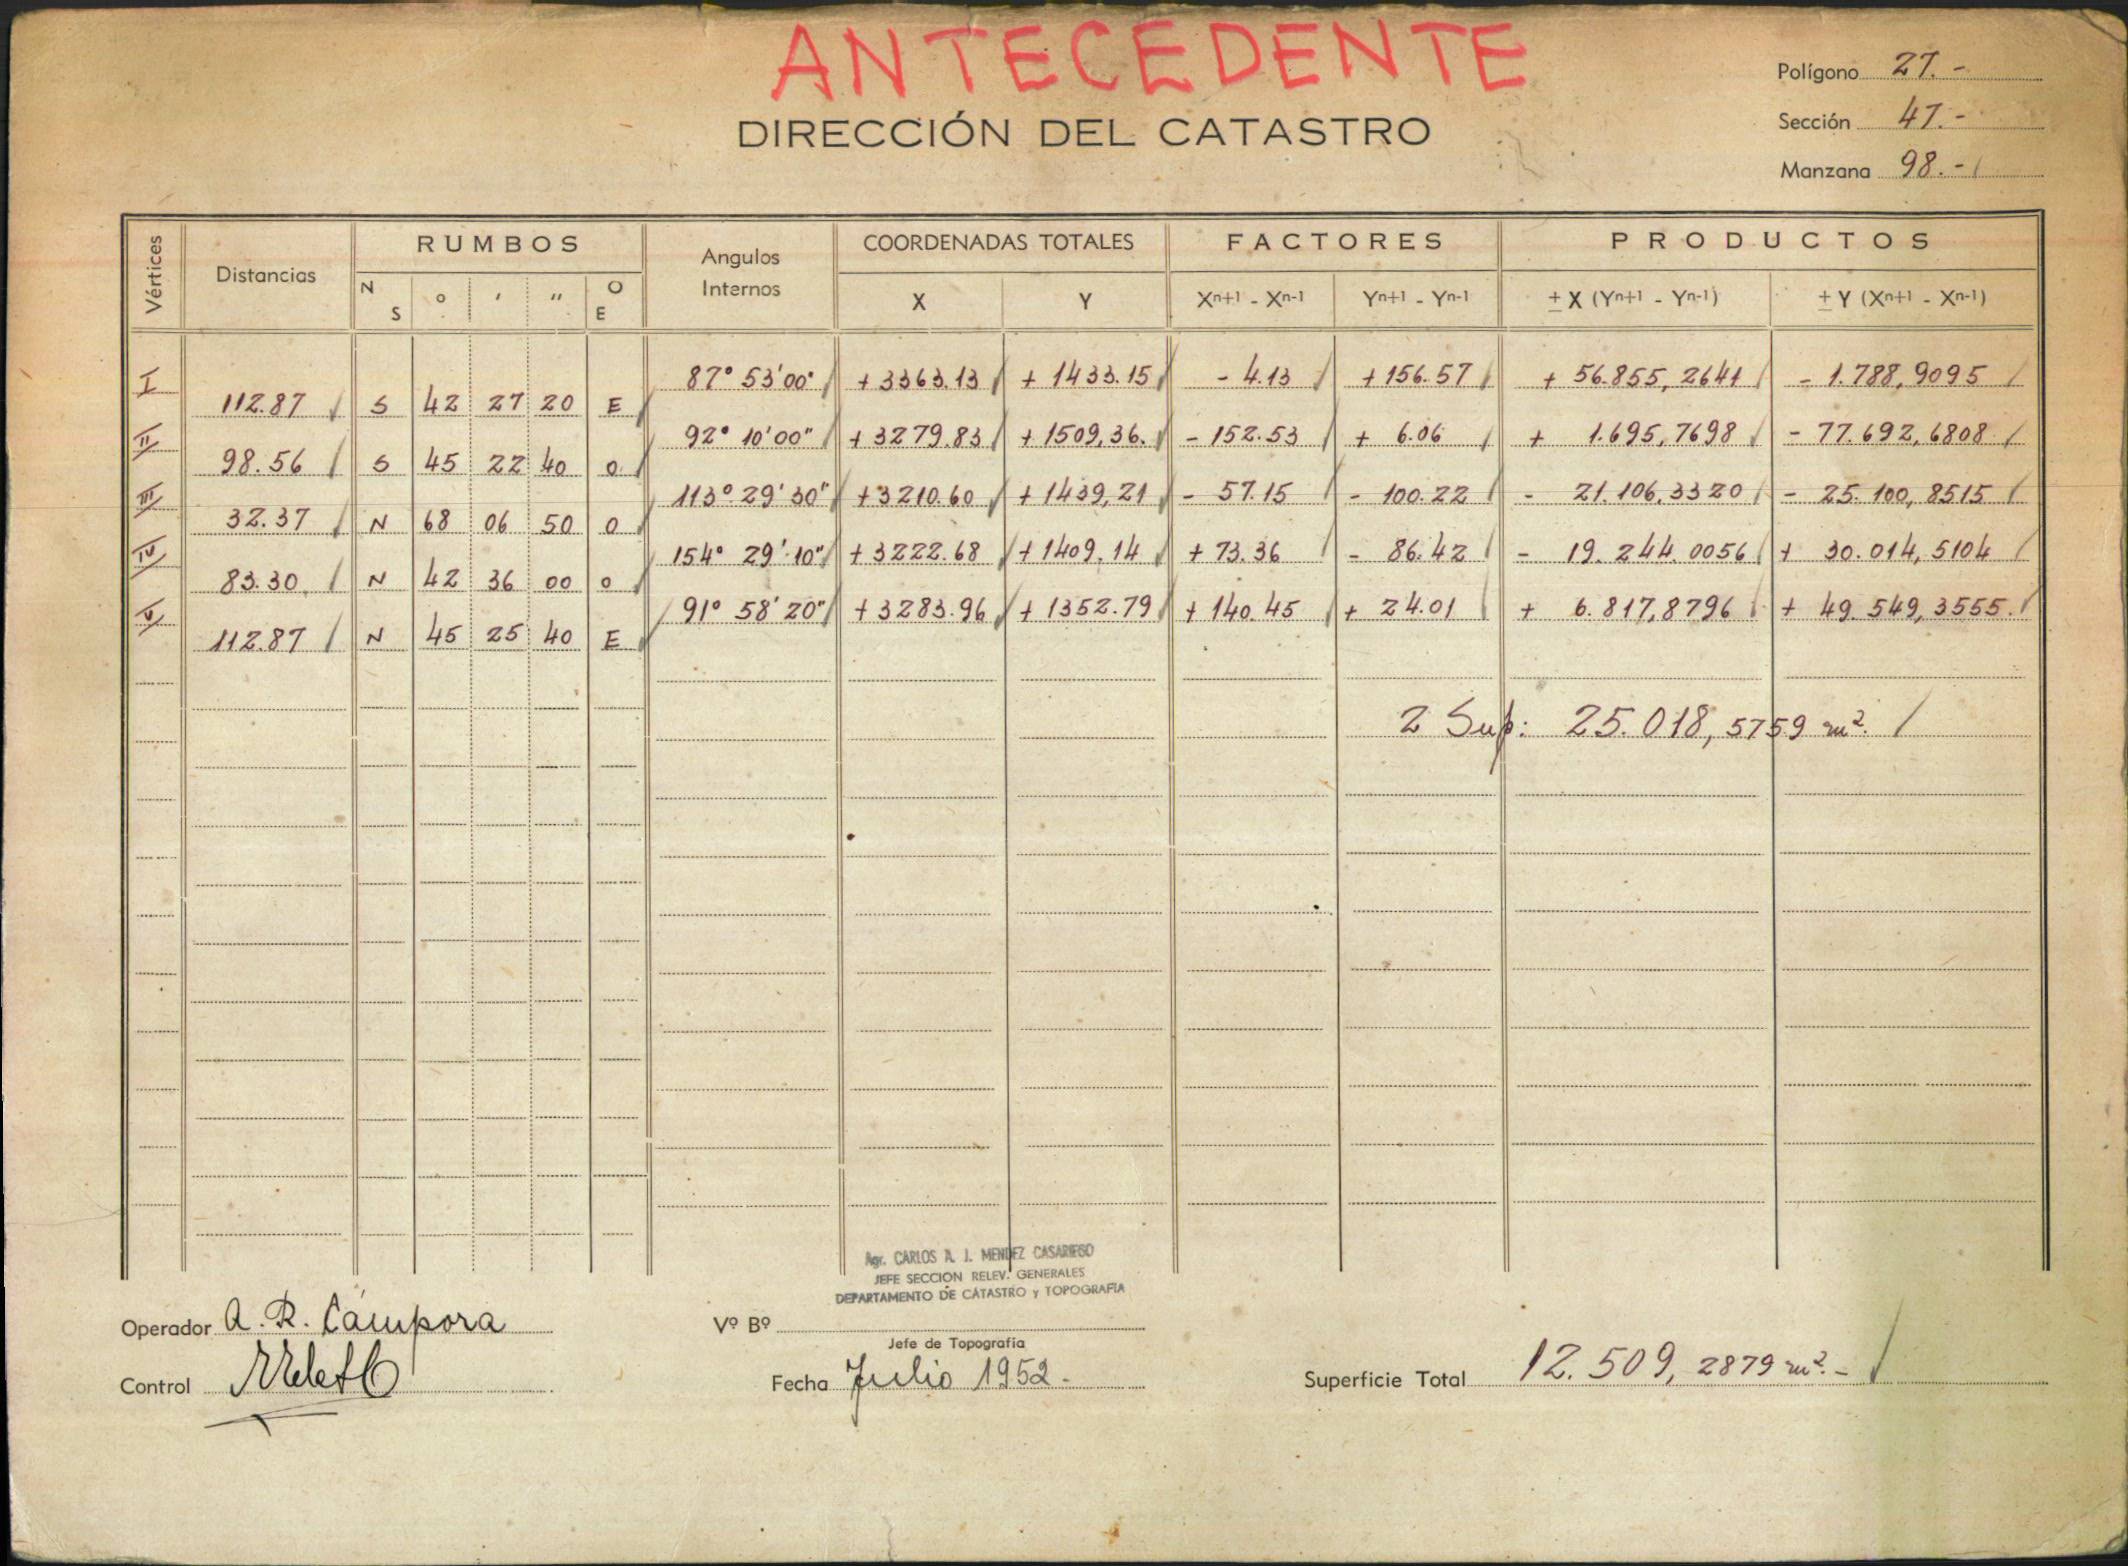 ANTECEDENTE
DIRECCIÓN DEL CATASTRO
Polígono 27.-
Sección 47.-
Manzana 98.-
Vértices Distancias RUMBOS Angulos Internos COORDENADAS TOTALES FACTORES PRODUCTOS
N S ° ' " O E X Y Xn+1 - Xn-1 Yn+1 - Yn-1 ± X (Yn+1 - Yn-1) ± Y (Xn+1 - Xn-1)
I 87° 53' 00" + 3363.13 + 1433.15 - 4.13 + 156.57 + 56.855,2641 - 1.788,9095
112.87 S 42 27 20 E
II 92° 10' 00" + 3279.83 + 1509,36. - 152.53 + 6.06 + 1.695,7698 - 77.692,6808
98.56 S 45 22 40 O
III 113° 29' 30" + 3210.60 + 1439,21 - 57.15 - 100.22 - 21.106,3320 - 25.100,8515
32.37 N 68 06 50 O
IV 154° 29' 10" + 3222.68 + 1409.14 + 73.36 - 86.42 - 19.244.0056 + 30.014,5104
83.30 N 42 36 00 O
V 91° 58' 20" + 3283.96 + 1352.79 + 140.45 + 24.01 + 6.817,8796 + 49.549,3555.
112.87 N 45 25 40 E
2 Sup: 25.018,5759 m².
Agr. CARLOS A. J. MENDEZ CASARIEGO
JEFE SECCION RELEV. GENERALES
DEPARTAMENTO DE CATASTRO y TOPOGRAFIA
Operador A. R. Cámpora
Vº Bº
Jefe de Topografía
Control
Fecha Julio 1952.-
Superficie Total 12.509,2879 m².-